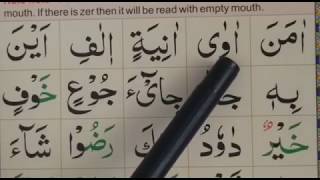 mouth. If there is zer then it will be read with empty mouth.
اٰمَنَ اٰوٰى اٰنِيَةٍ اٰلٰفِ اَيْنَ
بِهٖ جَآیْءَ جُوْعٍ خَوْفٍ
خَيْرٌ دَاوٗدُ رَضُوْا شَآءَ